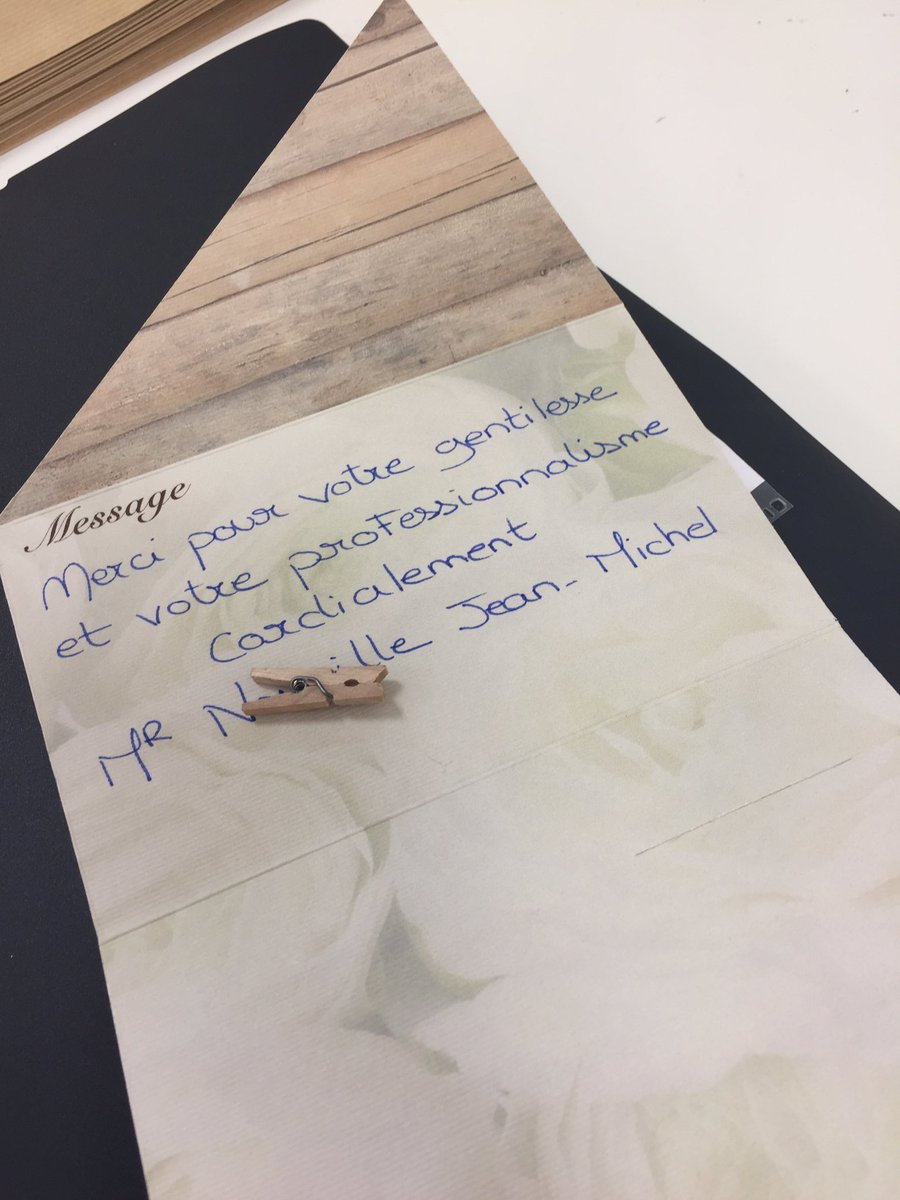 Message
Merci pour votre gentilesse
et votre professionnalisme
Cordialement
MR Jean-Michel